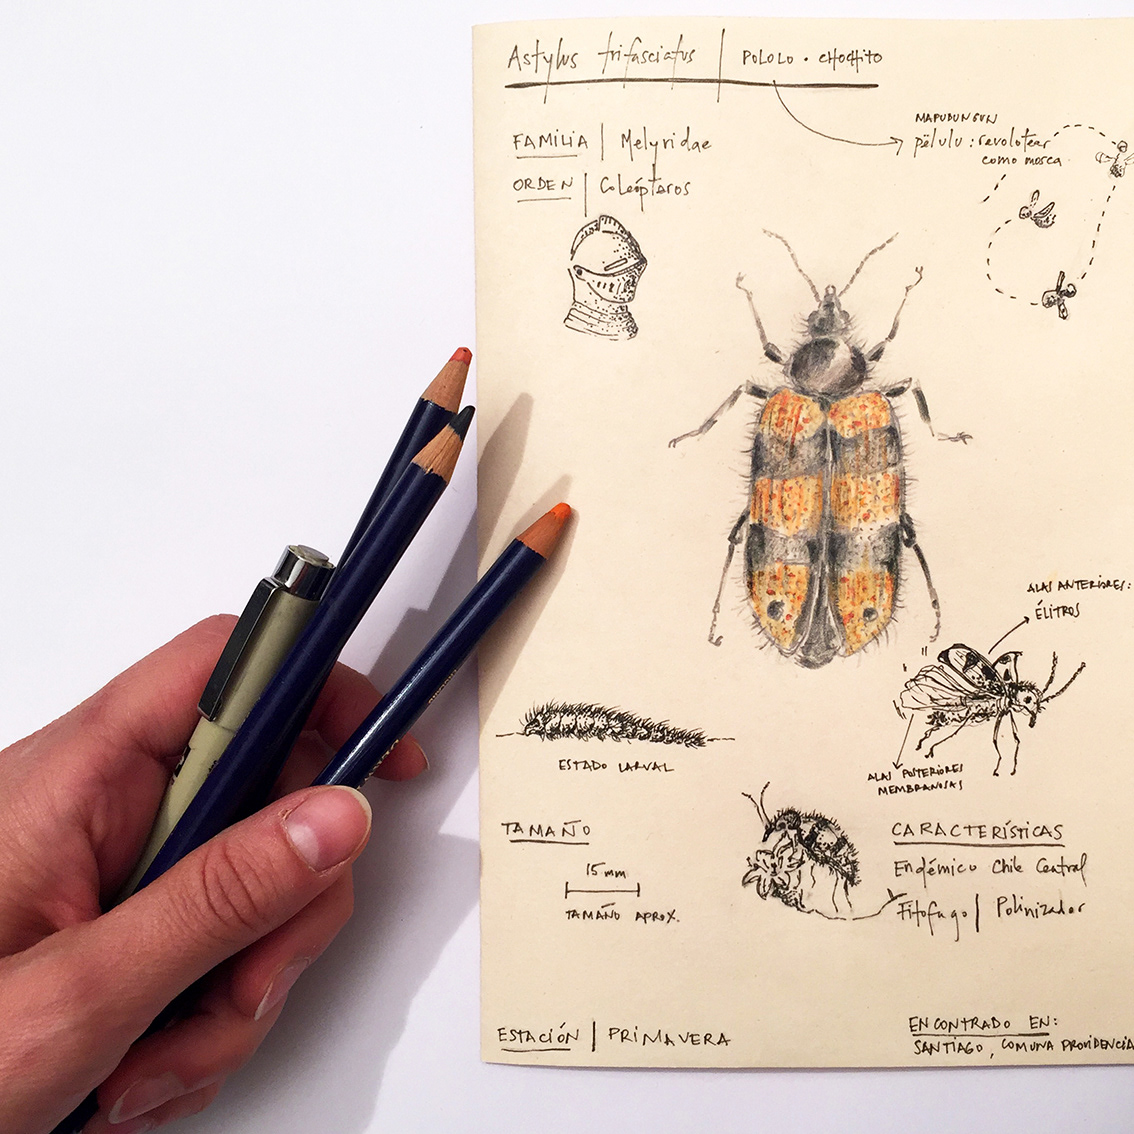 Astylus trifasciatus | POLOLO · CHOCHITO
MAPUDUNGUN
pëlulu : revolotear
como mosca
FAMILIA | Melyridae
ORDEN | Coleópteros
ALAS ANTERIORES:
ÉLITROS
ALAS POSTERIORES
MEMBRANOSAS
ESTADO LARVAL
TAMAÑO
15 mm
TAMAÑO APROX.
CARACTERÍSTICAS
Endémico Chile Central
Fitófago | Polinizador
ESTACIÓN | PRIMAVERA
ENCONTRADO EN:
SANTIAGO, COMUNA PROVIDENCIA